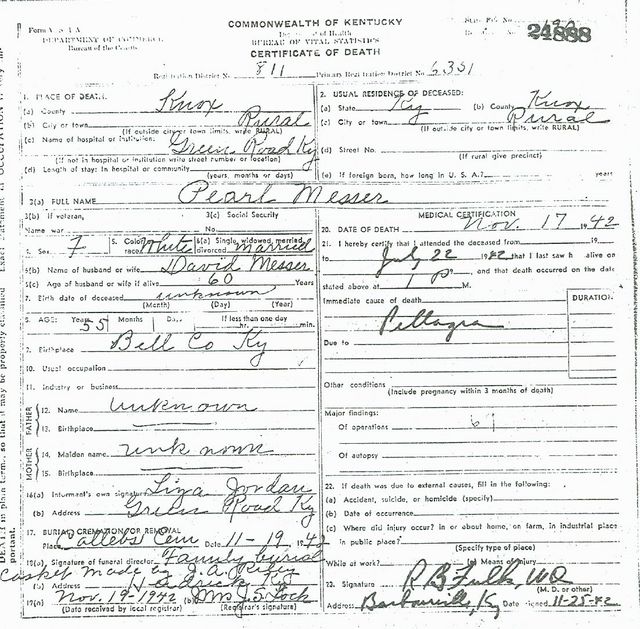 Form V S 1 A
DEPARTMENT OF COMMERCE
Bureau of the Census
COMMONWEALTH OF KENTUCKY
of Health
BUREAU OF VITAL STATISTICS
CERTIFICATE OF DEATH
State File No.
24888
Registration District No. 811 Primary Registration District No. 6351
1. PLACE OF DEATH:
(a) County Knox
(b) City or town Rural
(If outside city or town limits, write RURAL)
(c) Name of hospital or institution: Green Road Ky
(If not in hospital or institution write street number or location)
(d) Length of stay: In hospital or community
(years, months or days)
2. USUAL RESIDENCE OF DECEASED:
(a) State Ky (b) County Knox
(c) City or town Rural
(If outside city or town limits, write RURAL)
(d) Street No.
(If rural give precinct)
(e) If foreign born, how long in U. S. A.? years
3(a) FULL NAME Pearl Messer
3(b) If veteran, 3(c) Social Security
Name war No.
4. Sex F 5. Color or race White 6(a) Single, widowed, married, divorced married
6(b) Name of husband or wife David Messer
6(c) Age of husband or wife if alive 60 Years
7. Birth date of deceased unknown
(Month) (Day) (Year)
8. AGE: Years 55 Months Days If less than one day
hr. min.
9. Birthplace Bell Co Ky
10. Usual occupation
11. Industry or business
FATHER
12. Name unknown
13. Birthplace
MOTHER
14. Maiden name unknown
15. Birthplace
16(a) Informant's own signature Liza Jordan
(b) Address Green Road Ky
17. BURIAL CREMATION OR REMOVAL
Place Callebs Cem Date 11-19 1942
18(a) Signature of funeral director Family burial
casket made by J. A.
(b) Address Ky
19(a) Nov. 19-1942 (b) Mrs J. S. Lock
(Date received by local registrar) (Registrar's signature)
MEDICAL CERTIFICATION
20. DATE OF DEATH Nov. 17 1942
21. I hereby certify that I attended the deceased from 19
to July 22 1942 that I last saw h alive on
and that death occurred on the date
stated above at 1 P M.
Immediate cause of death
DURATION
Pellagra
Due to
Other conditions
(Include pregnancy within 3 months of death)
Major findings:
Of operations
Of autopsy
22. If death was due to external causes, fill in the following:
(a) Accident, suicide, or homicide (specify)
(b) Date of occurrence
(c) Where did injury occur? in or about home, on farm, in industrial place
in public place?
(Specify type of place)
While at work? (e) Means of injury
23. Signature R B Fulk, MD
(M. D. or other)
Address Barbourville, Ky Date signed 11-25-42